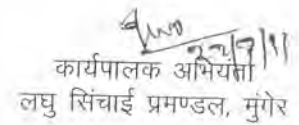 22/7/11
कार्यपालक अभियंता
लघु सिंचाई प्रमण्डल, मुंगेर